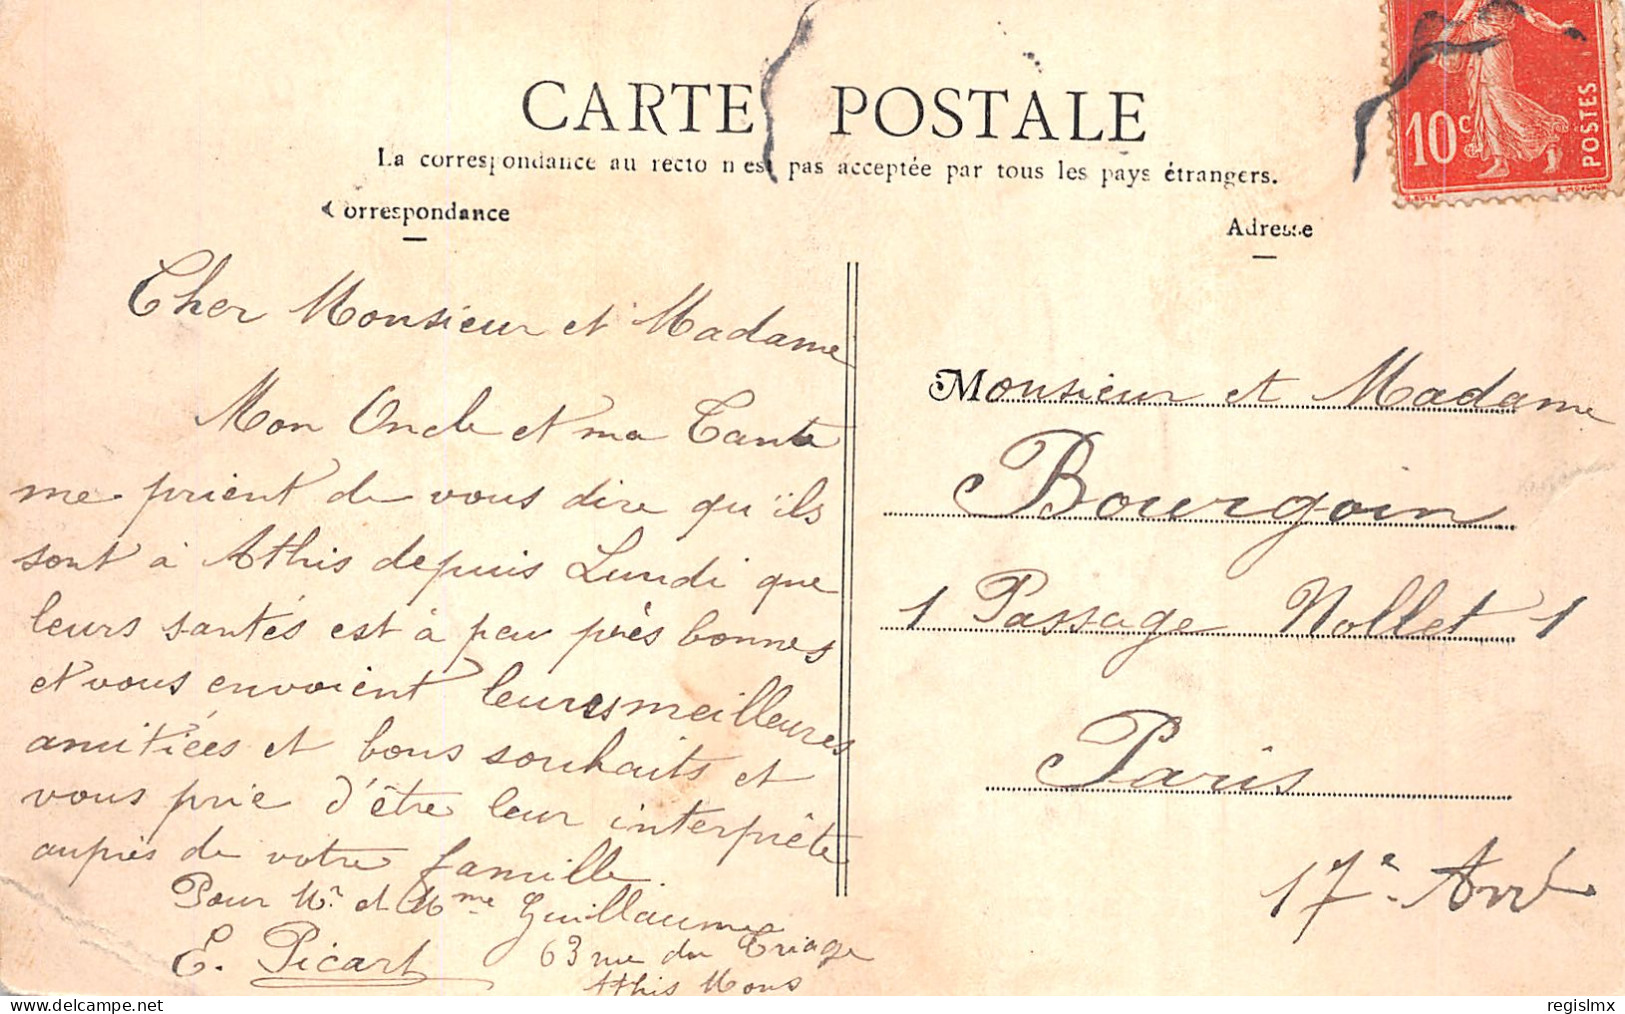 CARTE POSTALE
La correspondance au recto n'est pas acceptée par tous les pays étrangers.
Correspondance
Adresse
10c
POSTES
Cher Monsieur et Madame
Mon Oncle et ma Tante
me prient de vous dire qu'ils
sont à Athis depuis Lundi que
leurs santés est à peu près bonnes
et vous envoient leurs meilleures
amitiées et bons souhaits et
vous prie d'être leur interprête
auprès de votre famille.
Pour Mr. et Mme Guillaume
E. Picart
63 rue du Triage
Athis Mons
Monsieur et Madame
Bourgoin
1 Passage Nollet 1
Paris
17e Arrt
regislmx